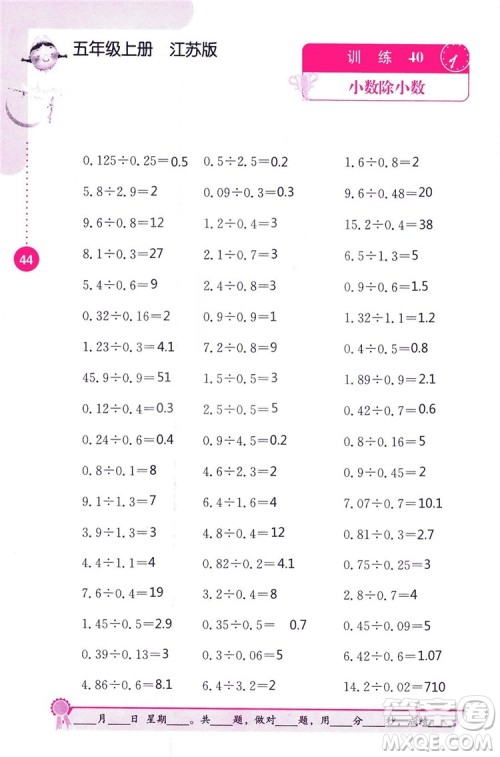 五年级上册 江苏版
训 练 40
小数除小数
44
0.125÷0.25=0.5 0.5÷2.5=0.2 1.6÷0.8=2
5.8÷2.9=2 0.09÷0.3=0.3 9.6÷0.48=20
9.6÷0.8=12 1.2÷0.4=3 15.2÷0.4=38
8.1÷0.3=27 2.1÷0.7=3 6.5÷1.3=5
5.4÷0.6=9 2.4÷0.8=3 0.6÷0.3=2
0.32÷0.16=2 0.9÷0.9=1 0.9÷0.6=1.5
1.23÷0.3=4.1 7.2÷0.8=9 0.4÷0.5=0.8
45.9÷0.9=51 1.5÷0.5=3 1.89÷0.9=2.1
0.12÷0.4=0.3 2.5÷0.5=5 0.42÷0.7=0.6
0.24÷0.6=0.4 0.9÷4.5=0.2 0.72÷0.6=1.2
0.8÷0.1=8 4.6÷2.3=2 0.9÷0.45=2
9.1÷1.3=7 6.4÷1.6=4 7.07÷0.7=10.1
3.9÷1.3=3 4.8÷0.4=12 0.34÷1.7=0.2
4.4÷1.1=4 0.82÷0.2=4.1 0.75÷0.25=3
7.6÷0.4=19 0.64÷0.4=1.6 3.75÷0.3=12.5
1.45÷0.5=2.9 0.35÷0.5= 0.7 4.32÷0.4=10.8
0.39÷0.13=3 0.9÷0.3= 3 5.45÷0.5=10.9
4.86÷0.6=8.1 0.18÷0.6=0.3 14.2÷0.02=710
____月____日 星期____。共____题，做对____题，用____分